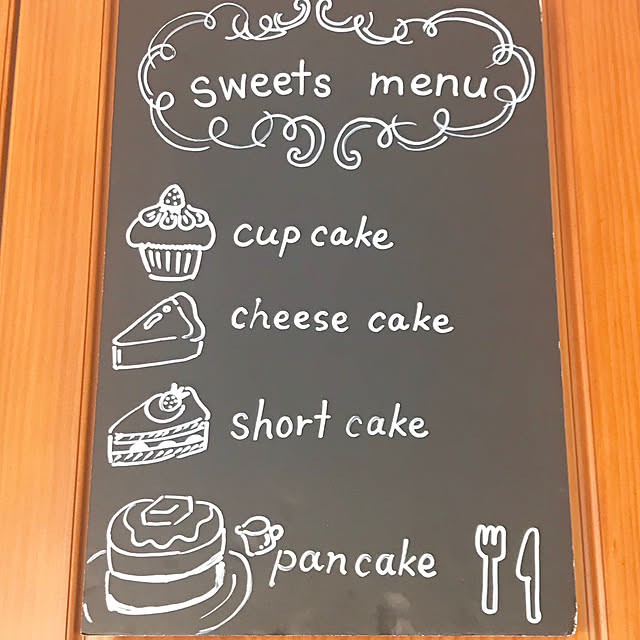 sweets menu
cup cake
cheese cake
short cake
pancake